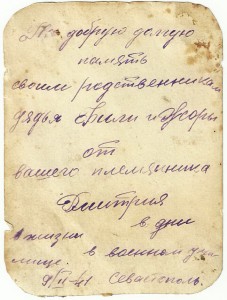 На добрую долгую
память
своим родственникам
дядья Коли и Жоры
от
вашего племянника
Дмитрия
в дни
жизни в военном учи-
лище.
9/II-41 Севастополь.